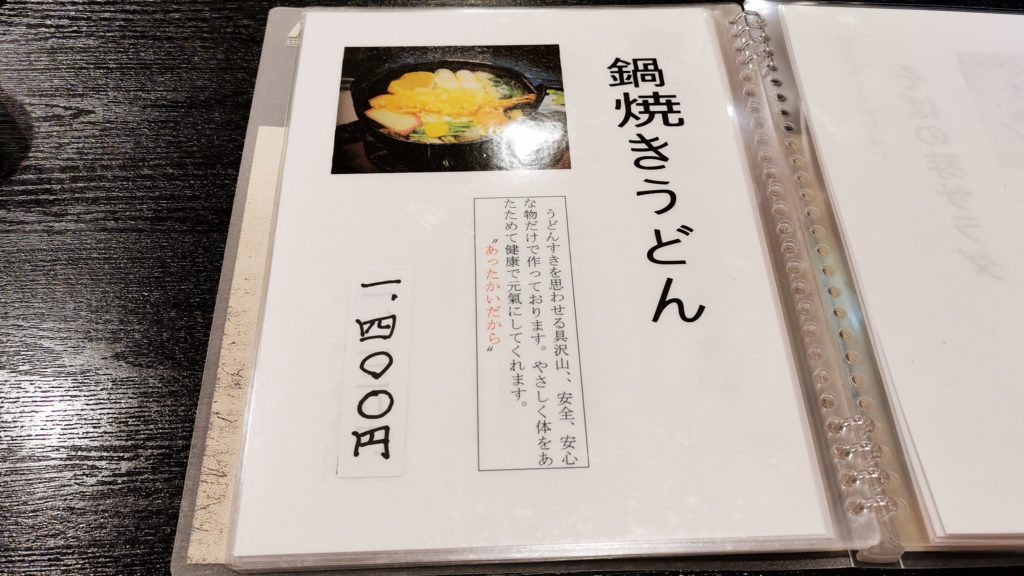 鍋焼きうどん
うどんすきを思わせる具沢山、、安全、安心
な物だけで作っております。やさしく体をあ
たためて健康で元氣にしてくれます。
〝あったかいだから〟
一、四〇〇円